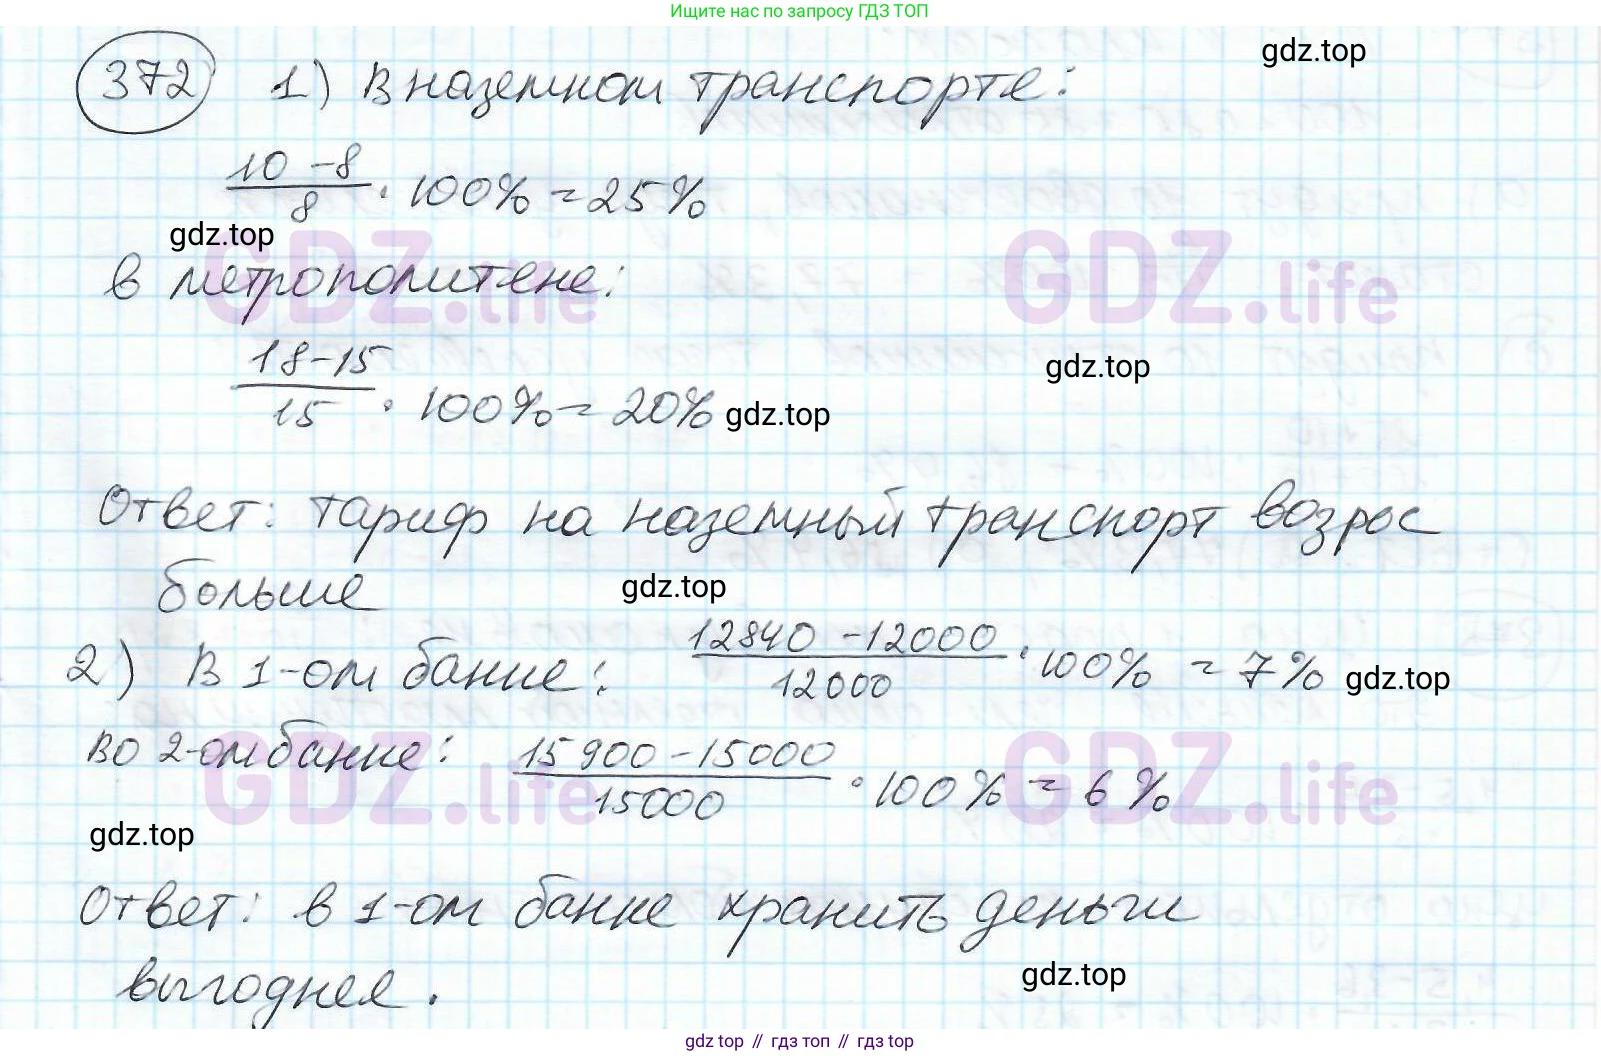 Ищите нас по запросу ГДЗ ТОП
gdz.top
372 1) В наземном транспорте:
10 - 8 / 8 · 100% = 25%
gdz.top
GDZ.life GDZ.life
в метрополитене:
18 - 15 / 15 · 100% = 20%
gdz.top
gdz.top
Ответ: тариф на наземный транспорт возрос
больше
gdz.top
2) В 1-ом банке: 12840 - 12000 / 12000 · 100% = 7%
gdz.top
во 2-ом банке: 15900 - 15000 / 15000 · 100% = 6%
GDZ.life GDZ.life
gdz.top
Ответ: в 1-ом банке хранить деньги
выгоднее.
gdz.top
gdz top // гдз топ // гдз top